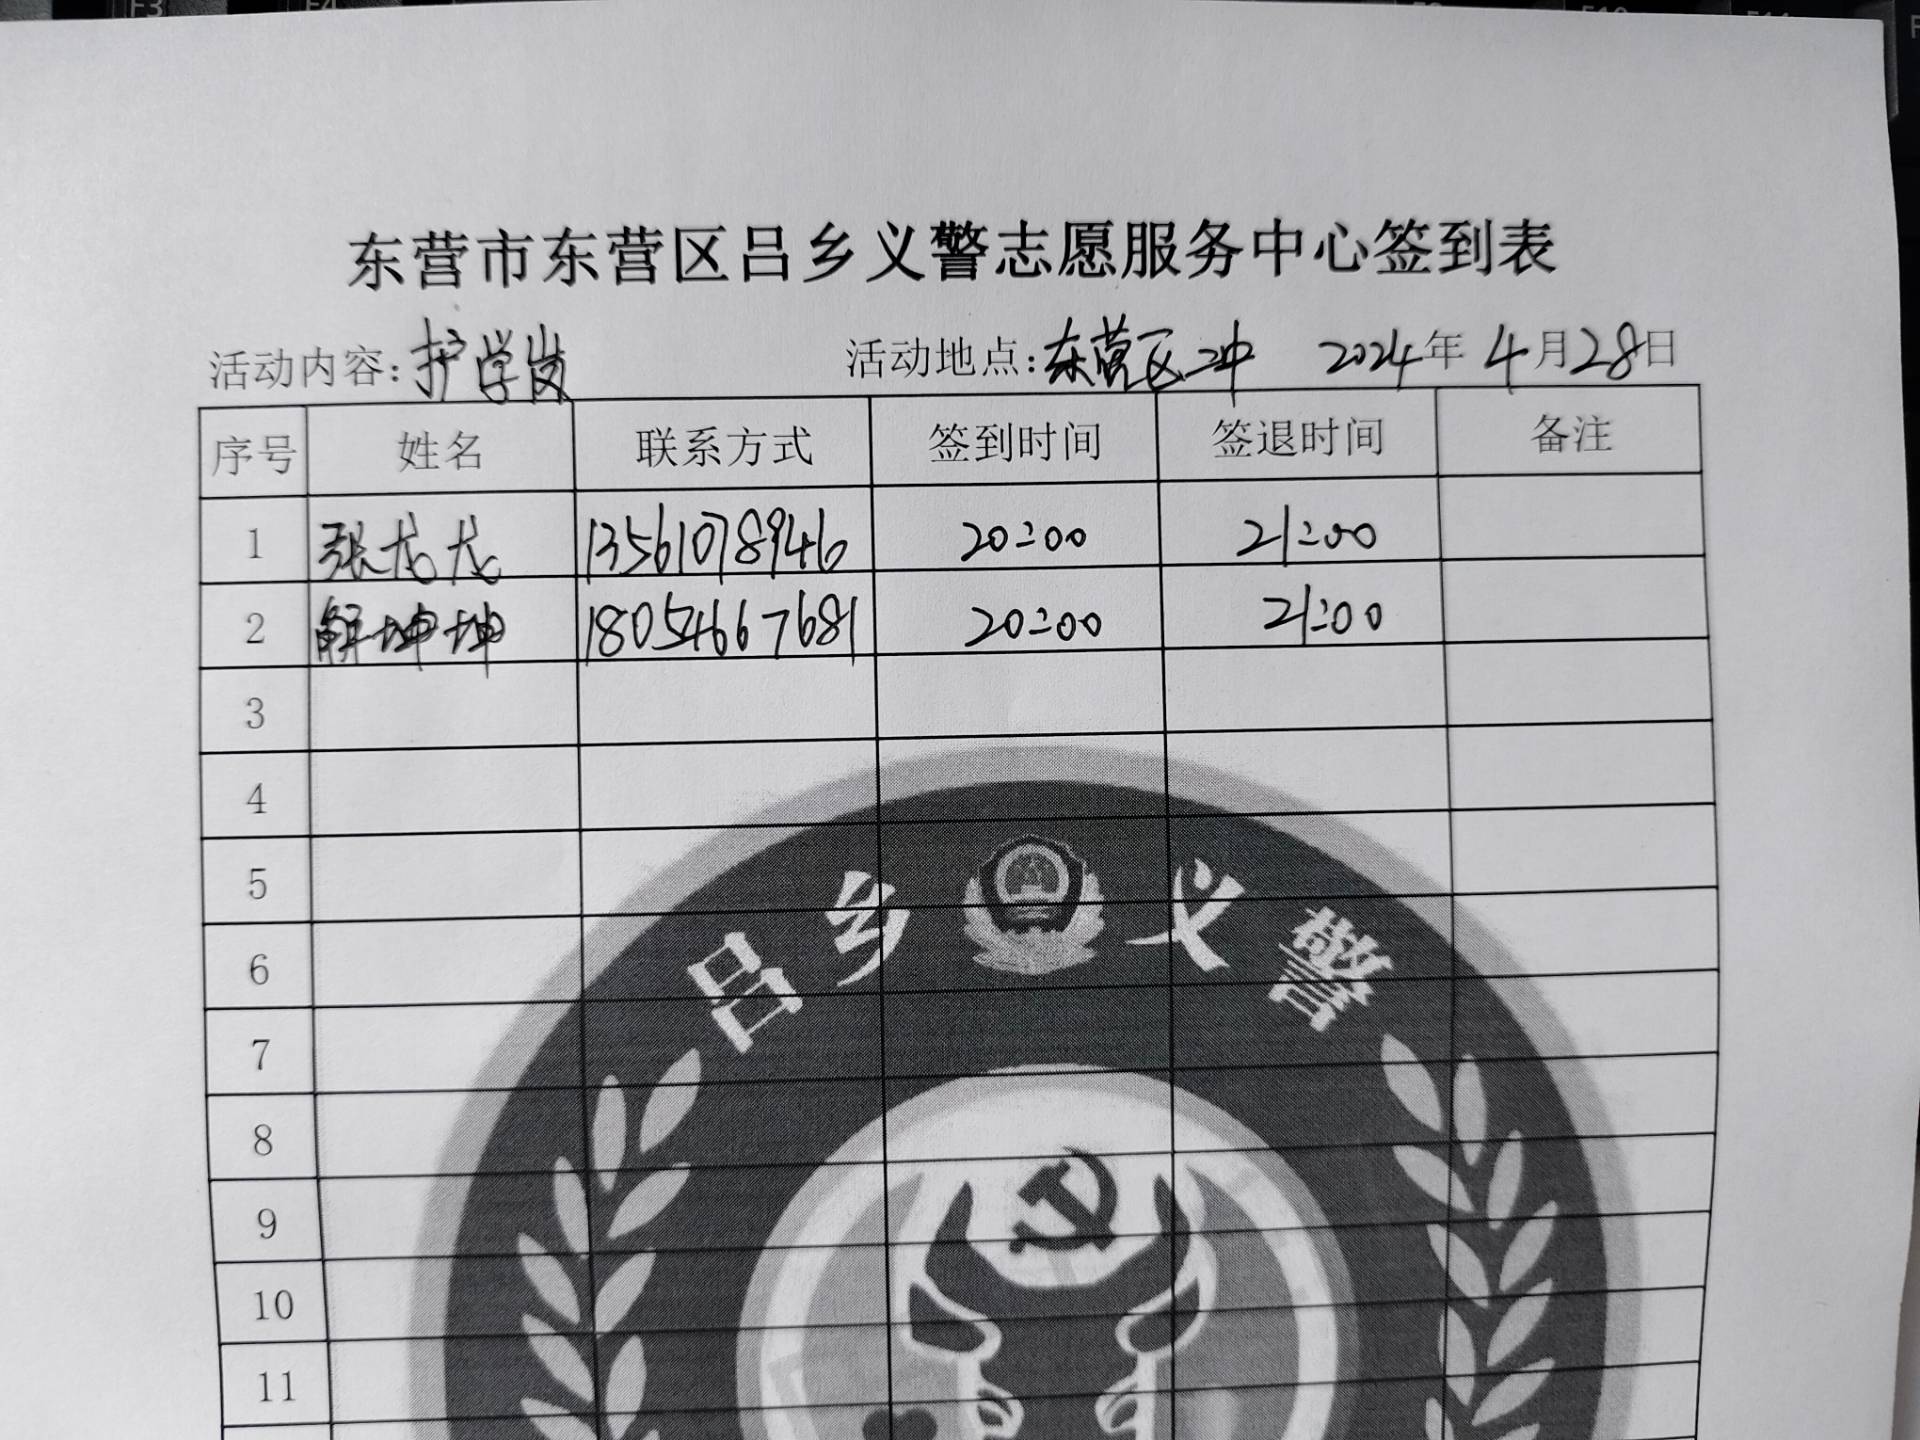 F3 F4
东营市东营区吕乡义警志愿服务中心签到表
活动内容:护学岗 活动地点:东营区二中 2024年 4月28日
序号 姓名 联系方式 签到时间 签退时间 备注
1 张龙龙 13561078946 20:00 21:00
2 解坤坤 18054667681 20:00 21:00
3
4
5
6
7
8
9
10
11
吕乡义警